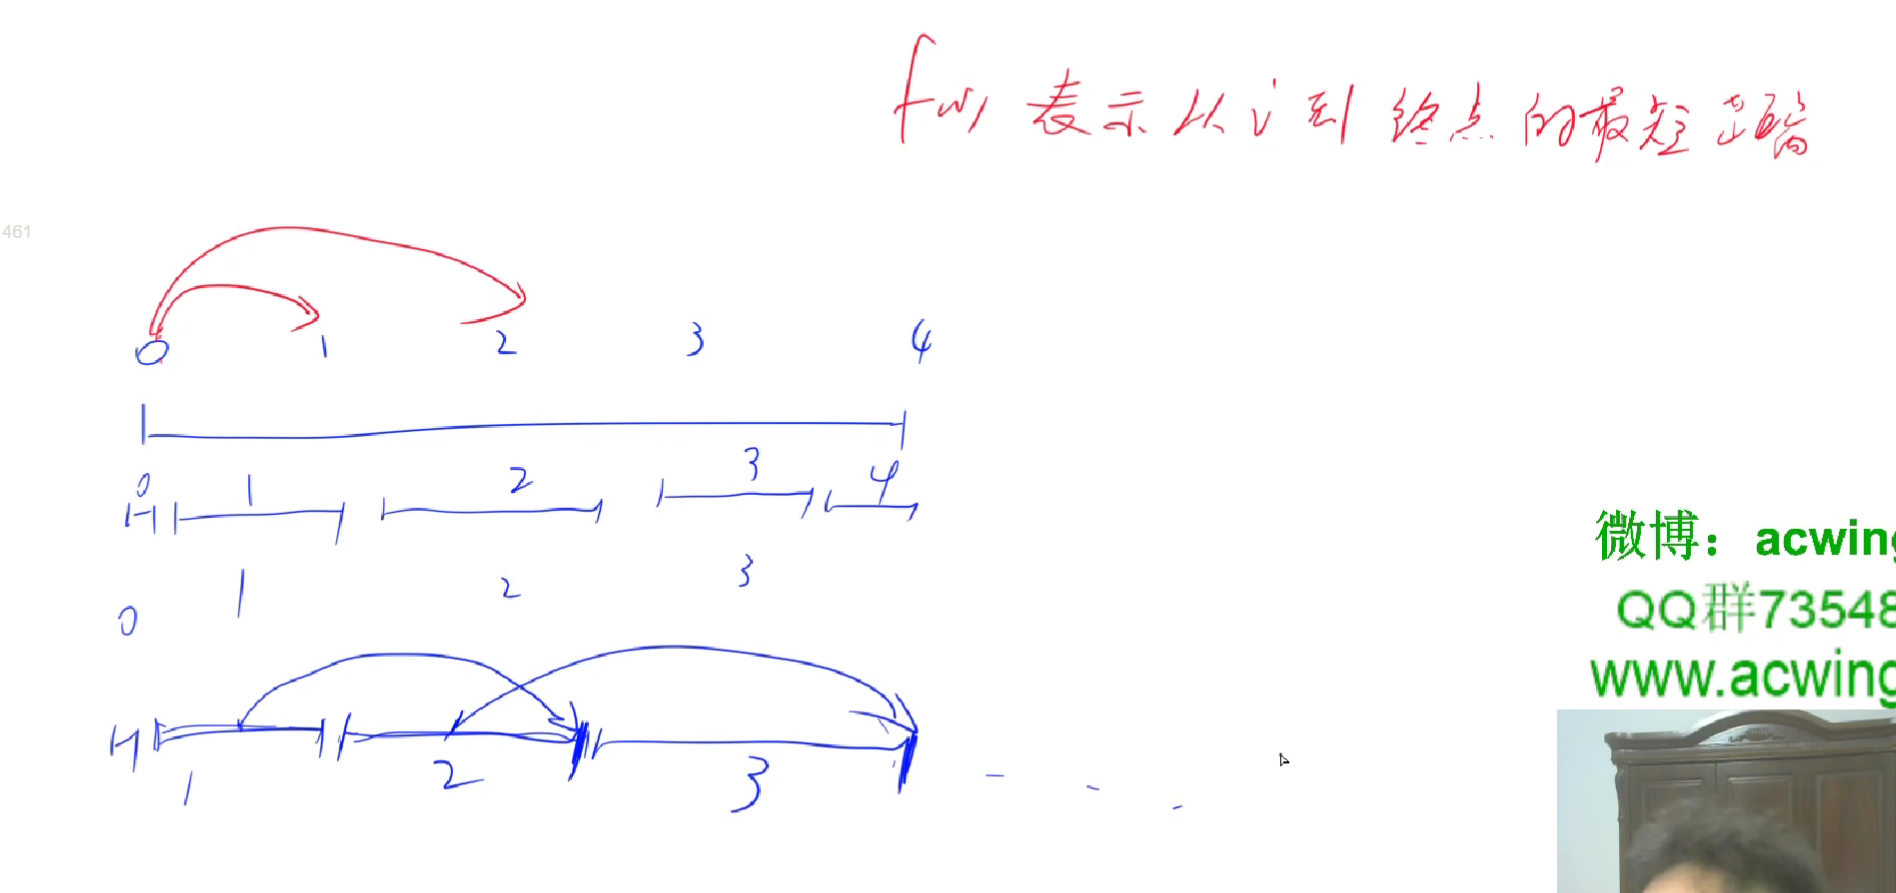 f(i) 表示从 i 到终点的最短距离
461
0 1 2 3 4
0 1 2 3 4
0 1 2 3
1 2 3
微博：acwing
QQ群73548
www.acwing